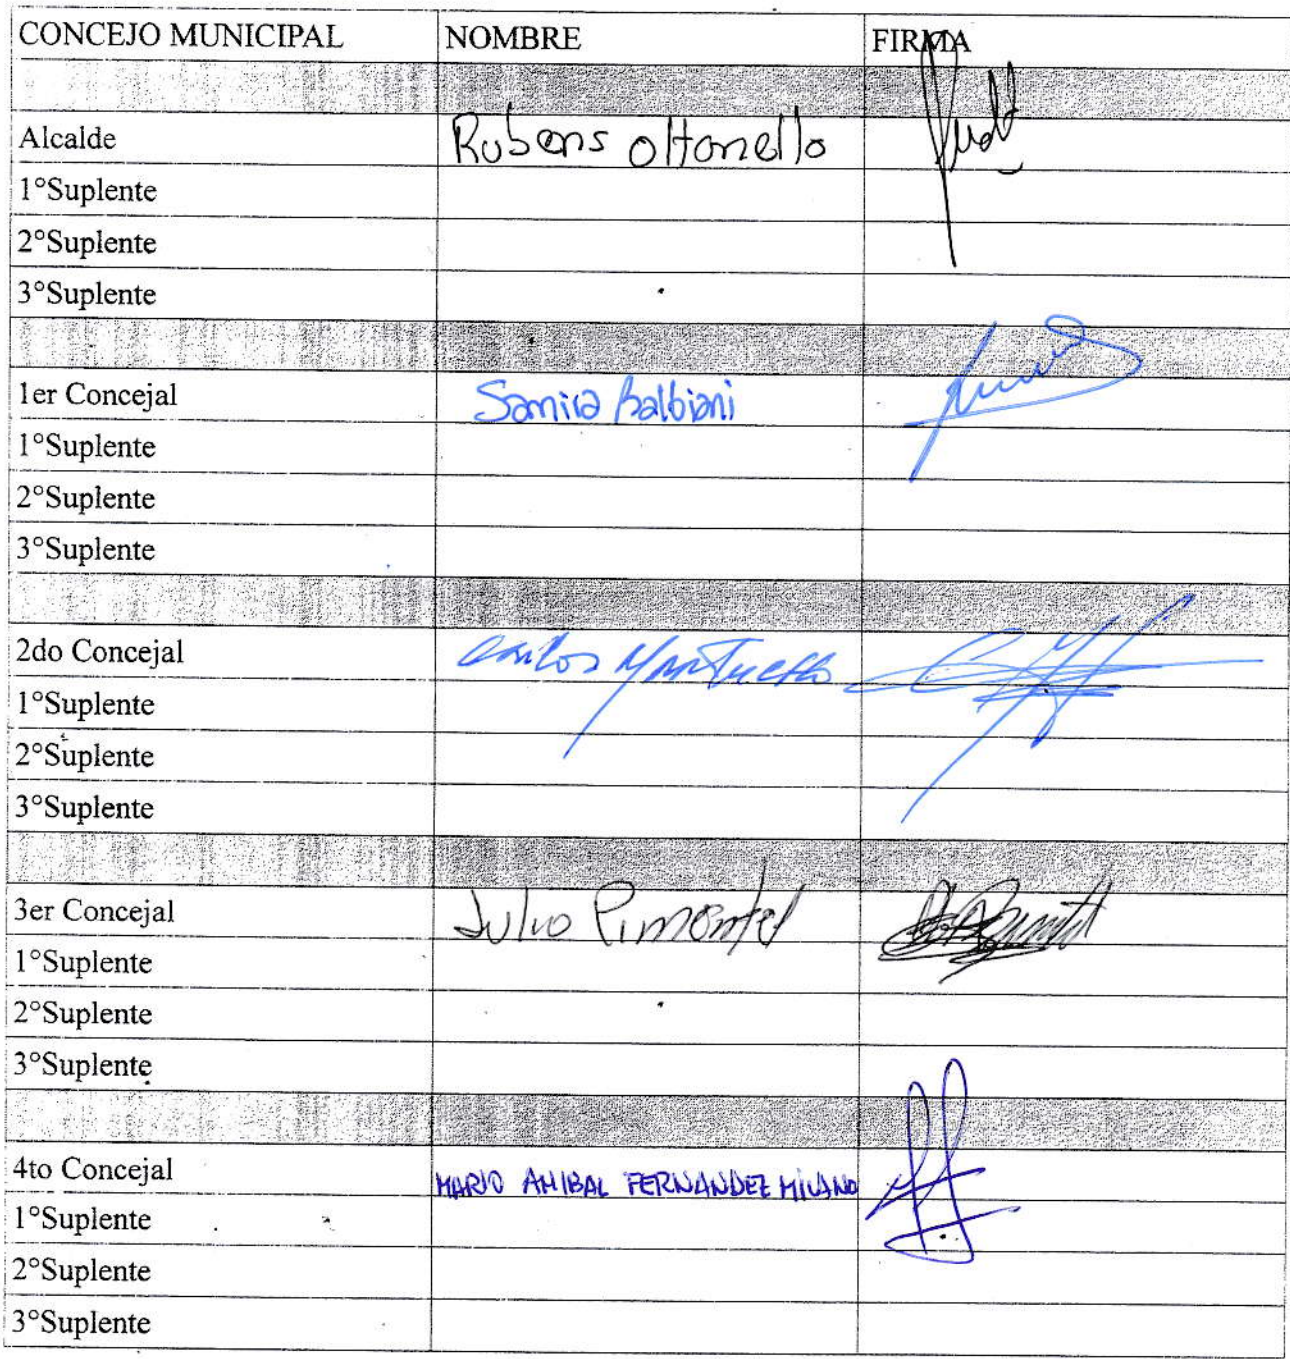 CONCEJO MUNICIPAL NOMBRE FIRMA
Alcalde Rubens Ottonello
1°Suplente
2°Suplente
3°Suplente
1er Concejal Samira Balbiani
1°Suplente
2°Suplente
3°Suplente
2do Concejal Carlos
1°Suplente
2°Suplente
3°Suplente
3er Concejal Julio Pimentel
1°Suplente
2°Suplente
3°Suplente
4to Concejal MARIO ANIBAL FERNANDEZ MILANO
1°Suplente
2°Suplente
3°Suplente